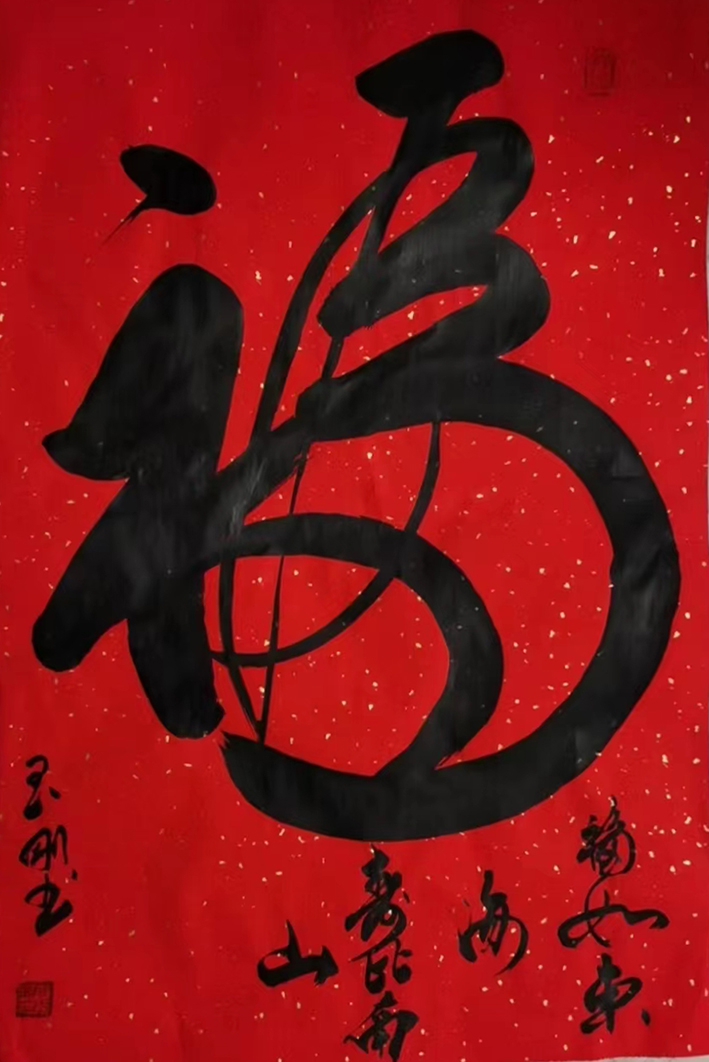 福
福如东
海
寿比南
山
玉刚书